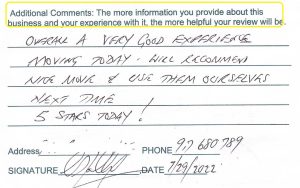 Additional Comments: The more information you provide about this
business and your experience with it, the more helpful your review will be.
OVERALL A VERY GOOD EXPERIENCE
MOVING TODAY - WILL RECOMMEND
NITE MOVE & USE THEM OURSELVES
NEXT TIME!
5 STARS TODAY!
Address PHONE 917 680 789
SIGNATURE DATE 7/29/2022